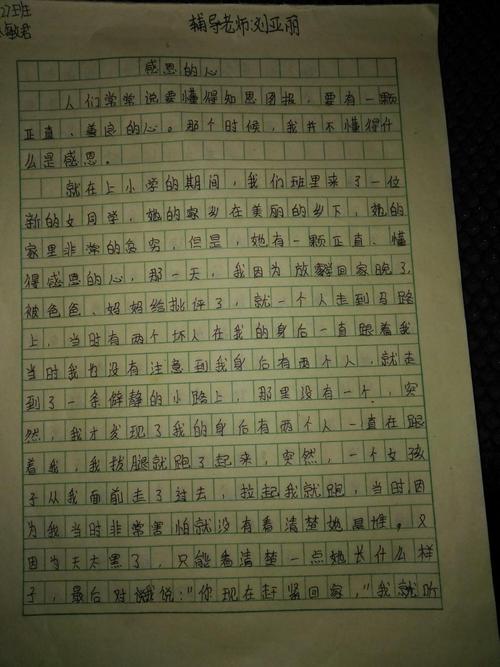 27班
敏君
辅导老师:刘亚丽
感恩的心
人们常常说要懂得知恩图报，要有一颗
正直、善良的心。那个时候，我并不懂得什
么是感恩。
就在上小学的期间，我们班里来了一位
新的女同学，她的家乡在美丽的乡下，她的
家里非常的贫穷，但是，她有一颗正直、懂
得感恩的心，那一天，我因为放学回家晚了，
被爸爸、妈妈给批评了，就一个人走到马路
上，当时有两个坏人在我的身后一直跟着我
当时我也没有注意到我身后有两个人，就走
到了一条僻静的小路上，那里没有一个，突
然，我才发现了我的身后有两个人一直在跟
着我，我拔腿就跑了起来，突然，一个女孩
子从我面前走了过去，拉起我就跑，当时因
为我当时非常害怕就没有看清楚她是谁。又
因为天太黑了，只能看清楚一点她长什么样
子，最后对我说："你现在赶紧回家，"我就听